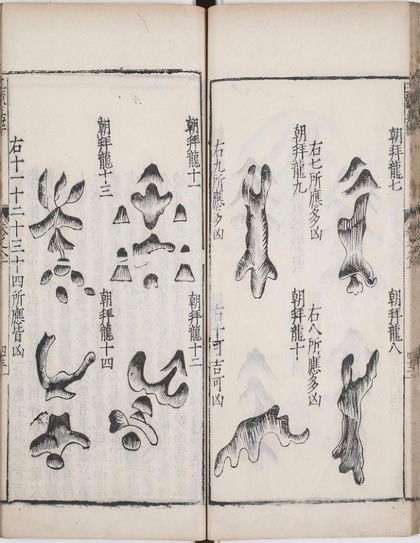 朝拜龍七
朝拜龍八
右七所應多凶
右八所應多凶
朝拜龍九
朝拜龍十
右九所應多凶
右十可吉可凶
朝拜龍十一
朝拜龍十二
朝拜龍十三
朝拜龍十四
右十一十二十三十四所應皆凶